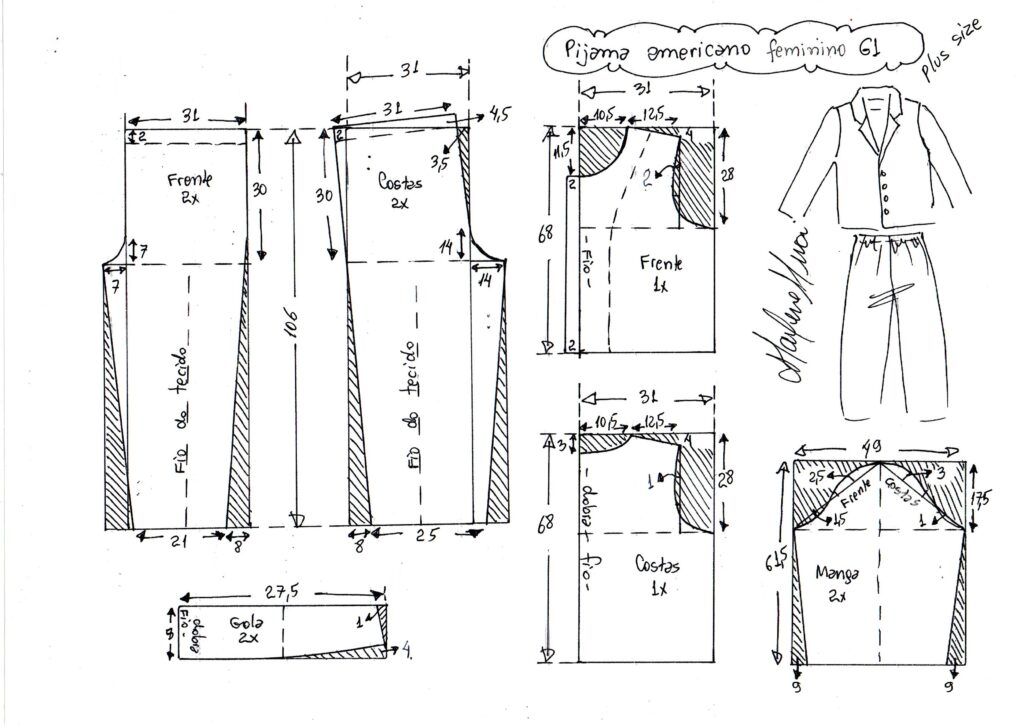 Pijama americano feminino G1
plus size
31
31
31
31
4,5
2
2
3,5
Frente
2x
Costas
2x
30
30
7
7
14
14
106
Fio do tecido
Fio do tecido
21
8
8
25
27,5
8
Fio -
dobra
Gola
2x
1
4
31
10,5
12,5
4
11,5
2
2
28
68
- Fio -
Frente
1x
2
31
10,5
12,5
4
3
1
28
68
- dobra + fio -
Costas
1x
49
2,5
3
Frente
Costas
17,5
1,5
1
61,5
Manga
2x
9
9